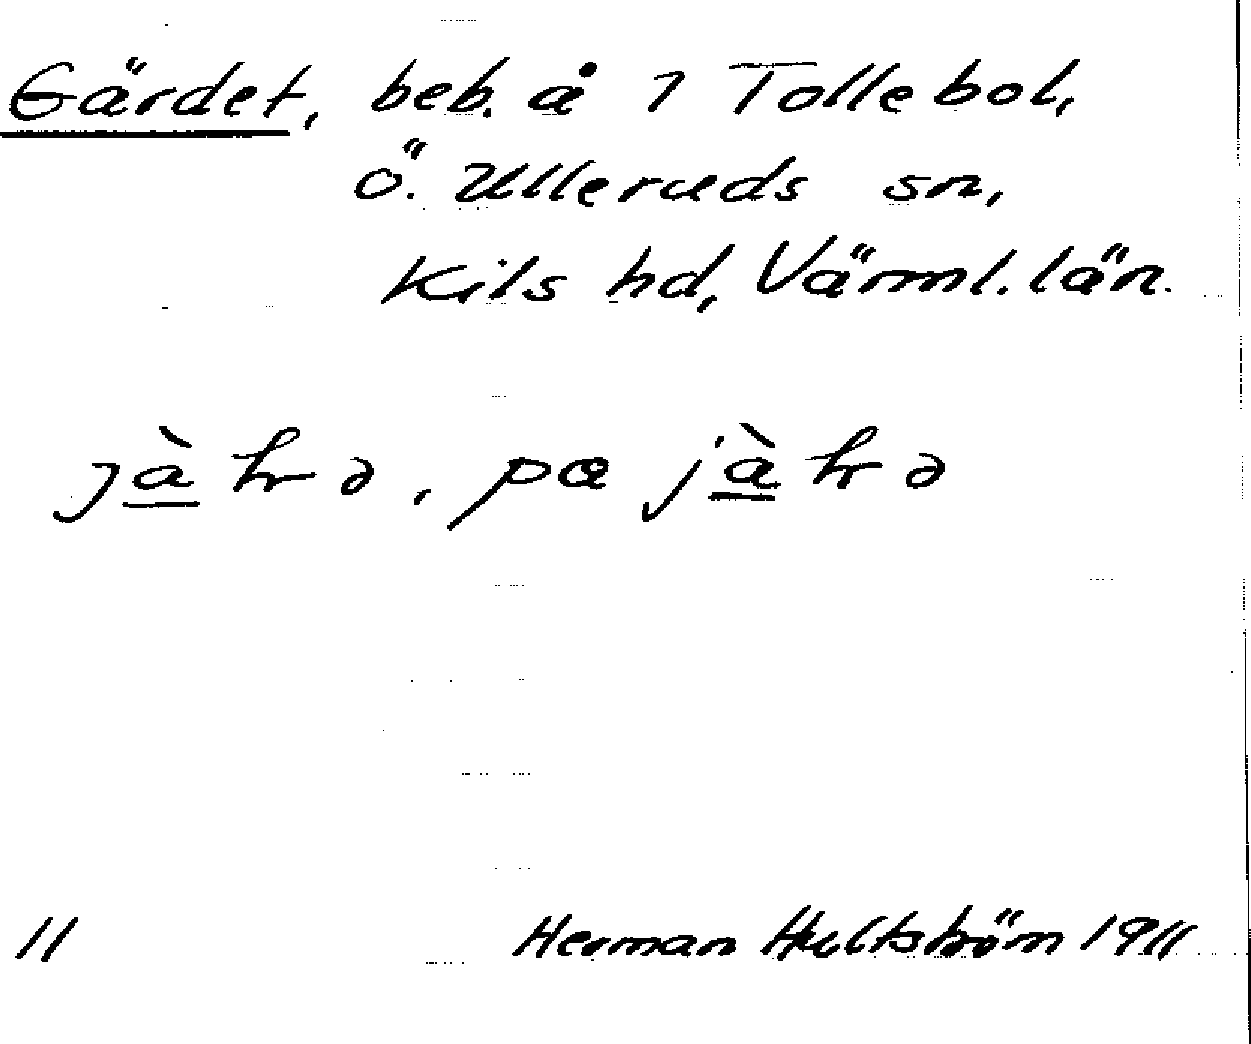 Gärdet, beb. å 1 Tollebol,
Ö. Ulleruds sn,
Kils hd, Värml. län.
pɑ
11 Herman Hultström 1911